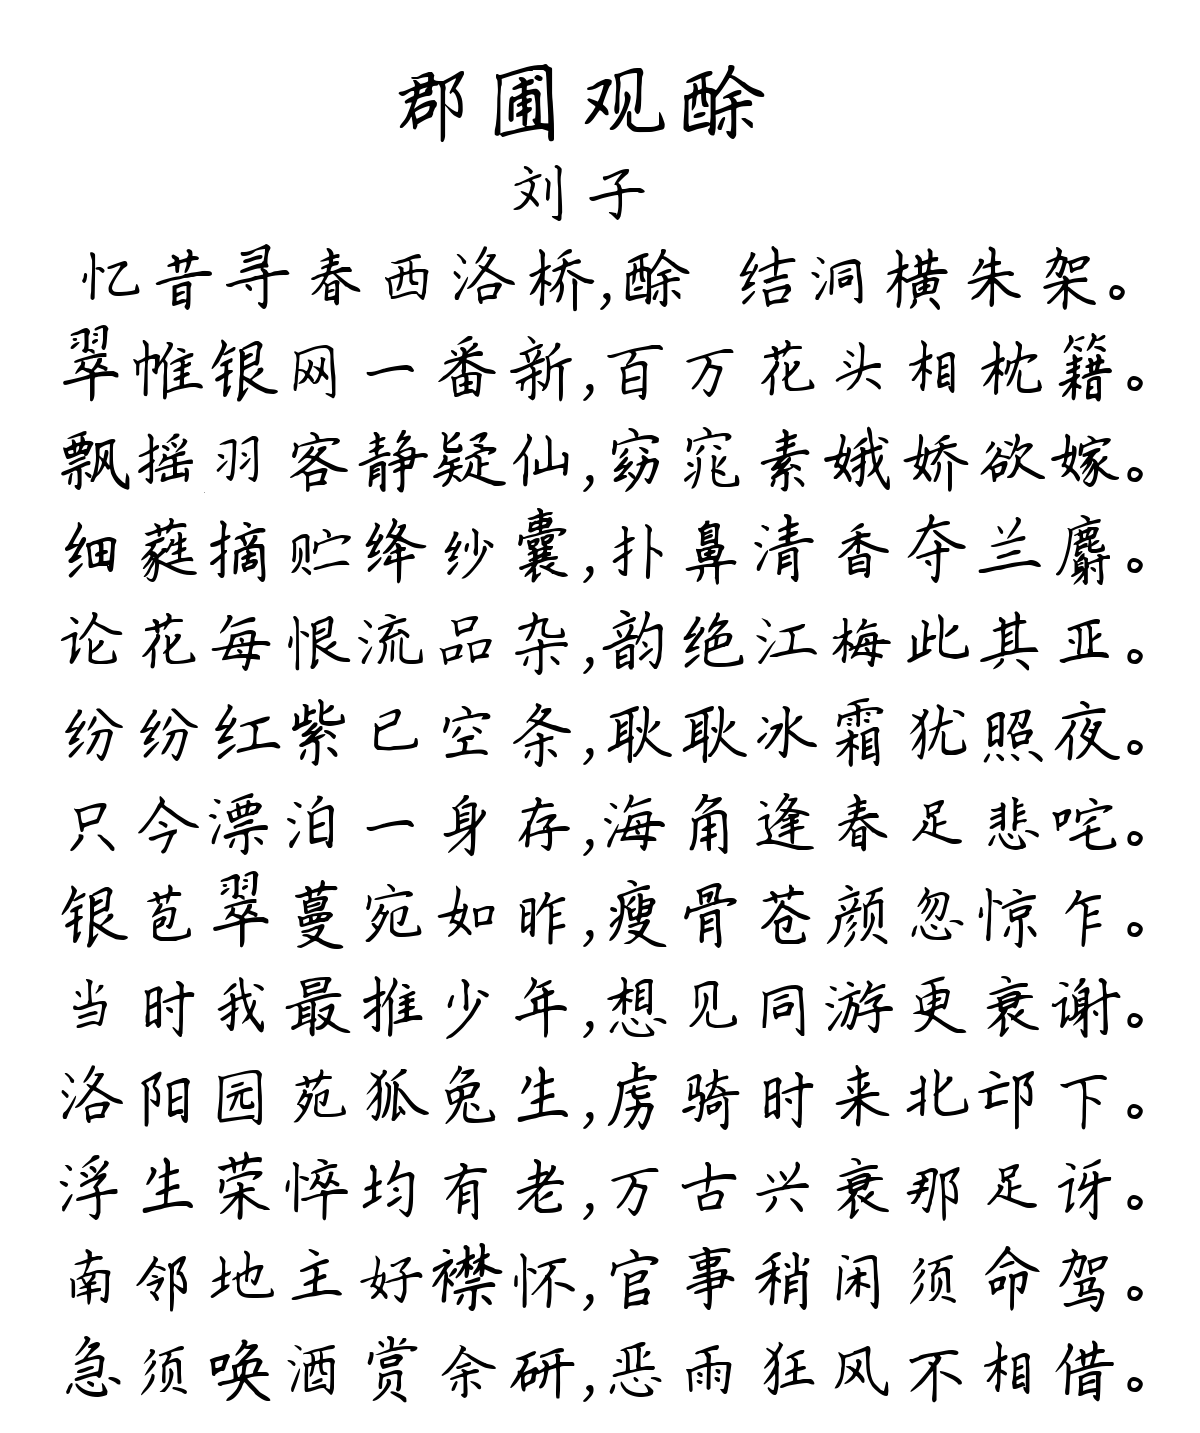 郡圃观酴
刘子
忆昔寻春西洛桥,酴 结洞横朱架。
翠帷银网一番新,百万花头相枕籍。
飘摇羽客静疑仙,窈窕素娥娇欲嫁。
细蕤摘贮绛纱囊,扑鼻清香夺兰麝。
论花每恨流品杂,韵绝江梅此其亚。
纷纷红紫已空条,耿耿冰霜犹照夜。
只今漂泊一身存,海角逢春足悲咤。
银苞翠蔓宛如昨,瘦骨苍颜忽惊乍。
当时我最推少年,想见同游更衰谢。
洛阳园苑狐兔生,虏骑时来北邙下。
浮生荣悴均有老,万古兴衰那足讶。
南邻地主好襟怀,官事稍闲须命驾。
急须唤酒赏余研,恶雨狂风不相借。